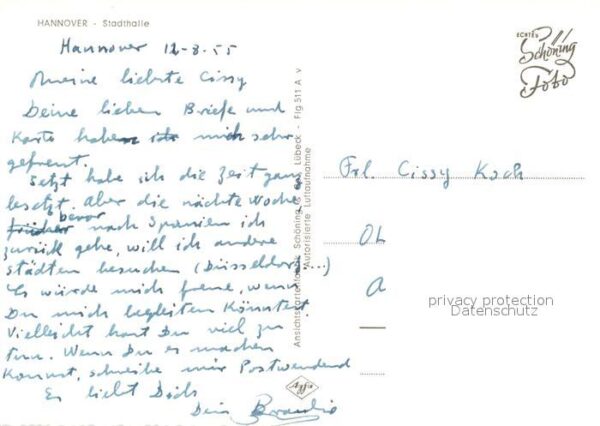 HANNOVER - Stadthalle
Hannover 12-8-55
Meine liebste Cissy
Deine lieben Briefe und
Karte haben mich sehr
gefreut.
Jetzt habe ich die Zeit ganz
besetzt. Aber die nächte Woche,
früher bevor nach Spanien ich
zurück gehe, will ich andere
städten besuchen (Düsseldorf...)
Es würde mich freue, wenn
Du mich begleiten könntest.
Vielleicht hast Du viel zu
tun. Wenn Du es machen
kannst, schreibe mir Postwendend
Es liebt Dich
Dein Braulio
Ansichtskartenfabrik Schöning & Co., Lübeck - Flg 511 A v
Autorisierte Luftaufnahme
Agfa
ECHTES
Schöning
Foto
Frl. Cissy Koch
OL
A
privacy protection
Datenschutz